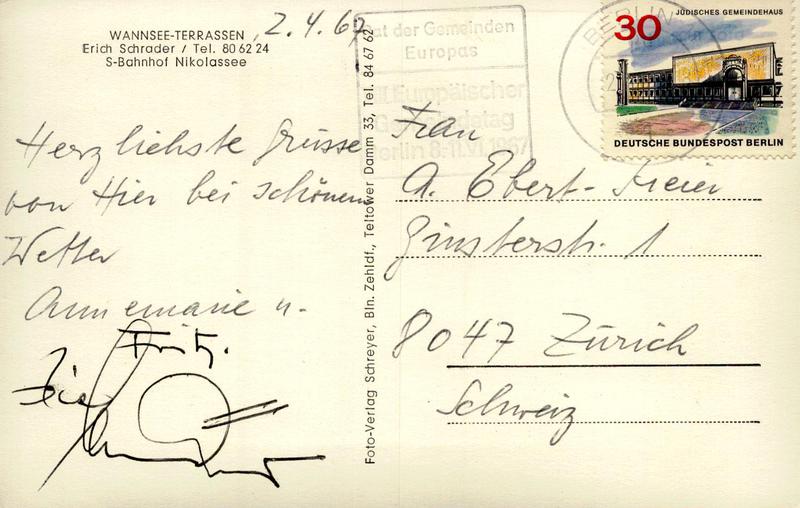 WANNSEE-TERRASSEN
Erich Schrader / Tel. 80 62 24
S-Bahnhof Nikolassee
, 2.4.67
Herzlichste Grüsse
von Hier bei schönem
Wetter
Annemarie u.
Fritz.
Foto-Verlag Schreyer, Bln. Zehldf., Teltower Damm 33, Tel. 84 67 62
Rat der Gemeinden
Europas
Europäischer
Gemeindetag
Berlin 8.-11.VI.1967
BERLIN
30
JÜDISCHES GEMEINDEHAUS
DEUTSCHE BUNDESPOST BERLIN
Frau
A. Ebert-
Ginsterstr. 1
8047 Zürich
Schweiz